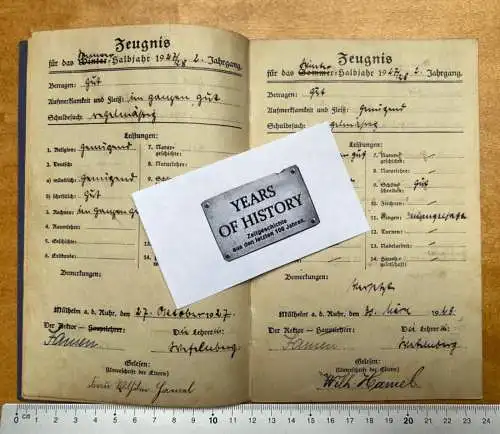 Zeugnis
für das Winter-Halbjahr 1927/28 2. Jahrgang.
Betragen: Gut
Aufmerksamkeit und Fleiß: im ganzen gut
Schulbesuch: regelmäßig
Leistungen:
1. Religion: Genügend
2. Deutsch
a) mündlich: Genügend
b) schriftlich: Gut
3. Rechnen: im Ganzen Gut
4. Raumlehre:
5. Geschichte:
6. Erdkunde:
7. Natur-
geschichte:
8. Natur-
Bemerkungen:
Mülheim a. d. Ruhr, den 27. Oktober 1927.
Der Rektor – Hauptlehrer: Die Lehrerin:
Gelesen:
(Unterschrift der Eltern)
Hamel
Zeugnis
Winter
für das Sommer-Halbjahr 1927/28 2. Jahrgang.
Betragen: Gut
Aufmerksamkeit und Fleiß: Genügend
Schulbesuch:
Leistungen:
7. Naturgeschichte:
9. Schönschreiben: Gut
10. Zeichnen:
11. Singen:
12. Turnen:
13. Nadelarbeit:
14. Hauswirtschaft:
Bemerkungen:
Versetzt
Mülheim a. d. Ruhr, den 30. März 1928.
Der Rektor – Hauptlehrer: Die Lehrerin:
Gelesen:
(Unterschrift der Eltern)
Wilh. Hamel
YEARS
OF HISTORY
Zeitgeschichte
aus den letzten 100 Jahren.
0 cm 1 2 3 4 5 6 7 8 9 10 11 12 13 14 15 16 17 18 19 20 21 22 23 24